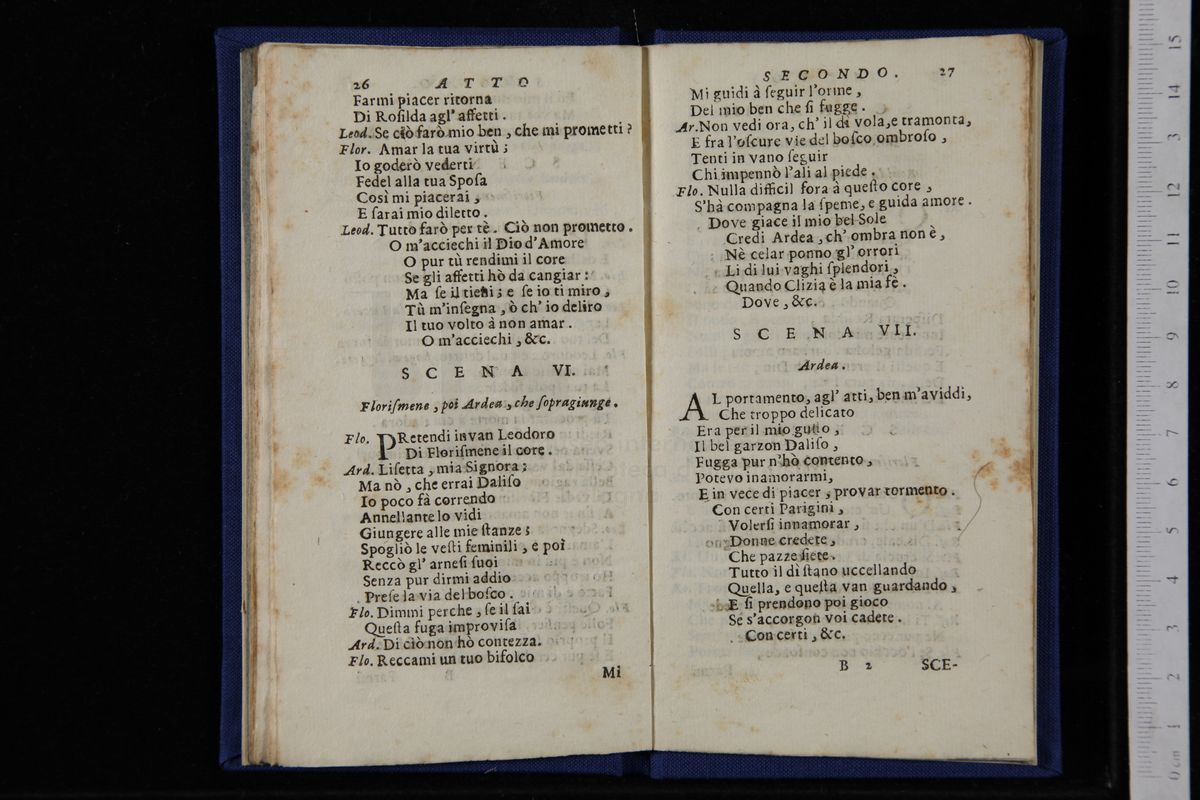 26 ATTO
Farmi piacer ritorna
Di Rosilda agl' affetti.
Leod. Se ciò farò mio ben, che mi prometti?
Flor. Amar la tua virtù;
Io goderò vederti
Fedel alla tua Sposa
Così mi piacerai,
E sarai mio diletto.
Leod. Tutto farò per tè. Ciò non prometto.
O m'acciechi il Dio d'Amore
O pur tù rendimi il core
Se gli affetti hò da cangiar:
Ma se il tieni; e se io ti miro,
Tù m'insegna, ò ch' io deliro
Il tuo volto à non amar.
O m'acciechi, &c.
SCENA VI.
Florismene, poi Ardea, che sopragiunge.
Flo. PRetendi invan Leodoro
Di Florismene il core.
Ard. Lisetta, mia Signora;
Ma nò, che errai Daliso
Io poco fà correndo
Annellante lo vidi
Giungere alle mie stanze;
Spogliò le vesti feminili, e poi
Reccò gl' arnesi suoi
Senza pur dirmi addio
Prese la via del bosco.
Flo. Dimmi perche, se il sai
Questa fuga improvisa
Ard. Di ciò non hò contezza.
Flo. Reccami un tuo bifolco
Mi
SECONDO. 27
Mi guidi à seguir l'orme,
Del mio ben che si fugge.
Ar. Non vedi ora, ch' il dì vola, e tramonta,
E fra l'oscure vie del bosco ombroso,
Tenti in vano seguir
Chi impennò l'ali al piede.
Flo. Nulla difficil fora à questo core,
S'hà compagna la speme, e guida amore.
Dove giace il mio bel Sole
Credi Ardea, ch' ombra non è,
Nè celar ponno gl' orrori
Li di lui vaghi splendori,
Quando Clizia è la mia fè.
Dove, &c.
SCENA VII.
Ardea.
AL portamento, agl' atti, ben m'aviddi,
Che troppo delicato
Era per il mio gusto,
Il bel garzon Daliso,
Fugga pur n'hò contento,
Potevo inamorarmi,
E in vece di piacer, provar tormento.
Con certi Parigini,
Volersi innamorar,
Donne credete,
Che pazze siete.
Tutto il dì stano uccellando
Quella, e questa van guardando,
E si prendono poi gioco
Se s'accorgon voi cadete.
Con certi, &c.
B 2 SCE-
0 cm 1 2 3 4 5 6 7 8 9 10 11 12 13 14 15